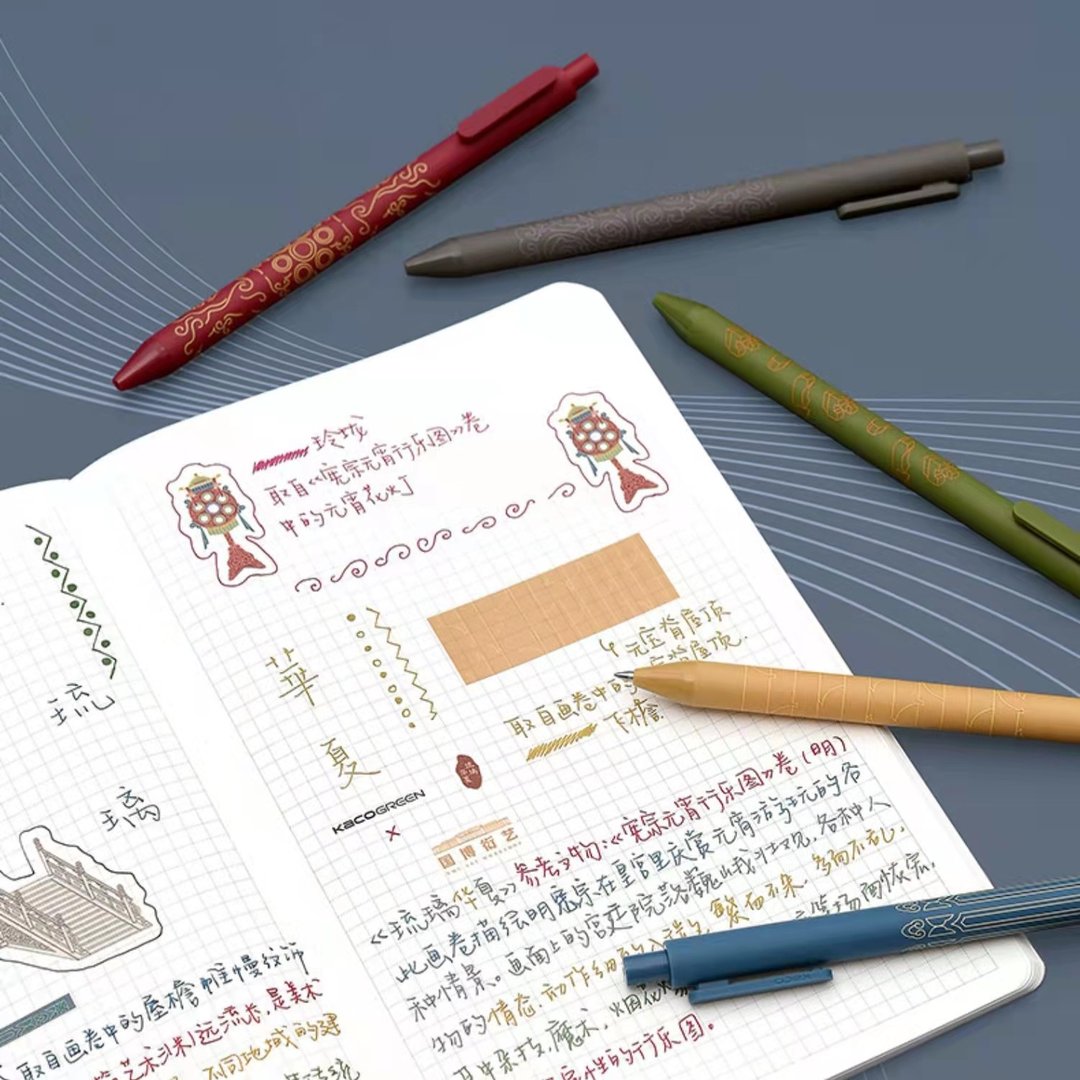 琉
璃
取自画卷中的屋檐帷幔纹饰
远流长,是美术
不同地域的建
玲珑
取自《宪宗元宵行乐图》卷
中的元宵花灯
華
夏
元宝脊屋顶
屋顶.
取自画卷中的
下檐.
KACOGREEN
×
国博衍艺
《琉璃华夏》参考文物:《宪宗元宵行乐图》卷(明)
此画卷描绘明宪宗在皇宫里庆赏元宵游玩的各
种情景。画面上的宫廷院落巍峨壮观,各种人
物的情态、动作细 繁而不乱,
杂技,魔术,烟花
行乐图。